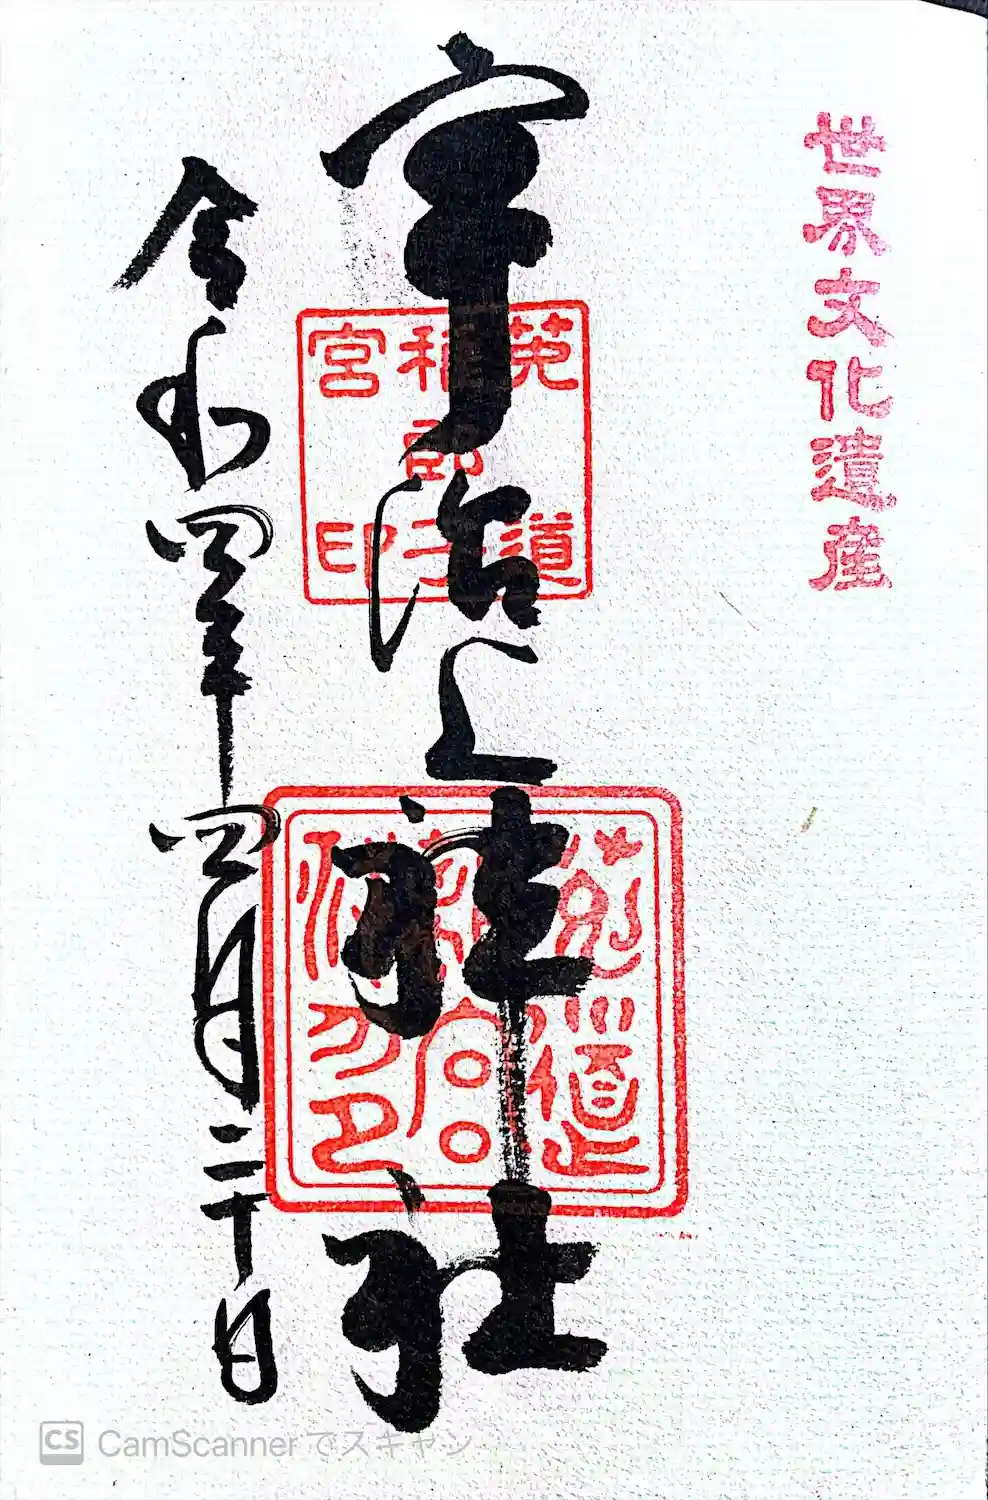 世界文化遺産
宇治上神社
菟道
稚郎子
宮印
菟道
令和四年四月二十日
CS CamScannerでスキャン